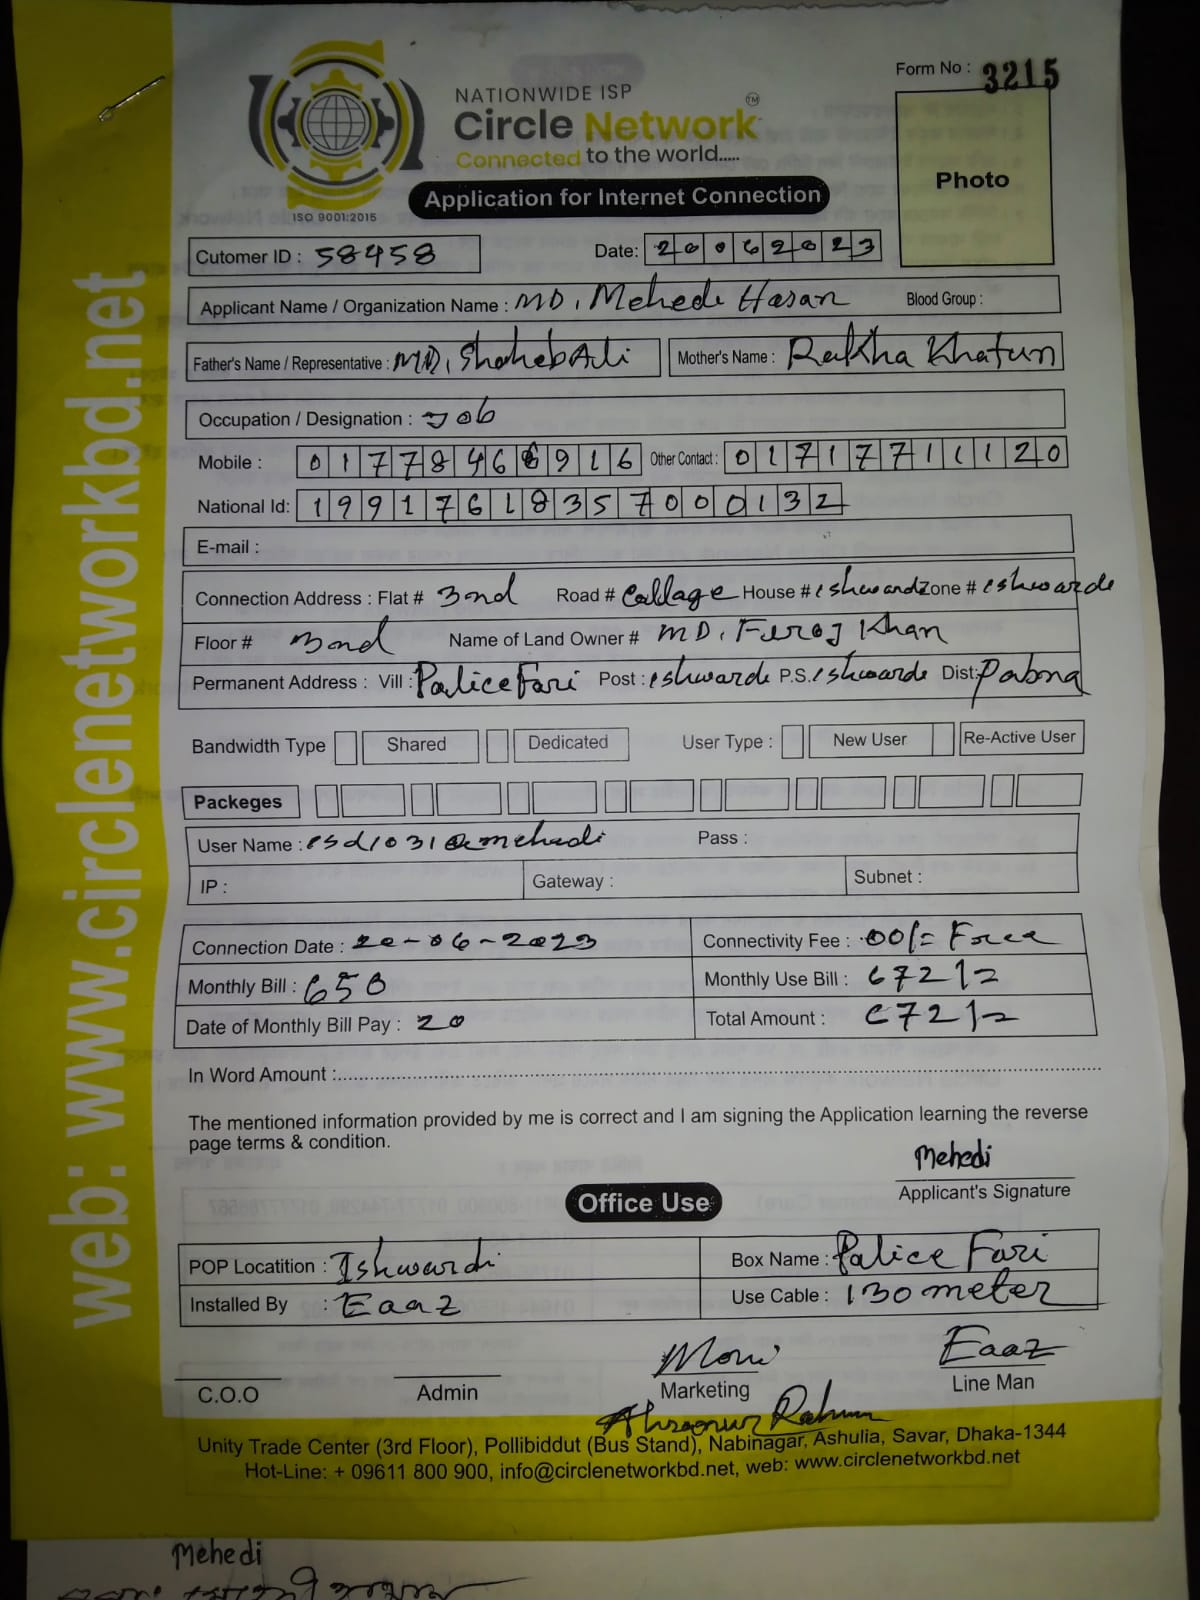 Form No : 3215
NATIONWIDE ISP
Circle Network TM
Connected to the world.....
ISO 9001:2015
Application for Internet Connection
Photo
Cutomer ID : 58458
Date: 20062023
Applicant Name / Organization Name : MD. Mehedi Hasan Blood Group :
Father's Name / Representative : MD. Shaheb Ali Mother's Name : Rekha Khatun
Occupation / Designation : Job
Mobile : 01778466916 Other Contact : 01717711120
National Id: 19917618357000132
E-mail :
Connection Address : Flat # 3nd Road # Collage House # eshwardi Zone # eshwarde
Floor # 3nd Name of Land Owner # MD. Feroj Khan
Permanent Address : Vill : Palice Fari Post : eshwarde P.S. eshwarde Dist: Pabna
Bandwidth Type Shared Dedicated User Type : New User Re-Active User
Packeges
User Name : esd1031@mehedi Pass :
IP : Gateway : Subnet :
Connection Date : 20-06-2023 Connectivity Fee : 00/= Free
Monthly Bill : 650 Monthly Use Bill : 672/=
Date of Monthly Bill Pay : 20 Total Amount : 672/=
In Word Amount :
The mentioned information provided by me is correct and I am signing the Application learning the reverse
page terms & condition.
Mehedi
Applicant's Signature
Office Use
POP Locatition : Ishwardi Box Name : Palice Fari
Installed By : Eaaz Use Cable : 130 meter
Moni Eaaz
C.O.O Admin Marketing Line Man
Unity Trade Center (3rd Floor), Pollibiddut (Bus Stand), Nabinagar, Ashulia, Savar, Dhaka-1344
Hot-Line: + 09611 800 900, info@circlenetworkbd.net, web: www.circlenetworkbd.net
web: www.circlenetworkbd.net
Mehedi